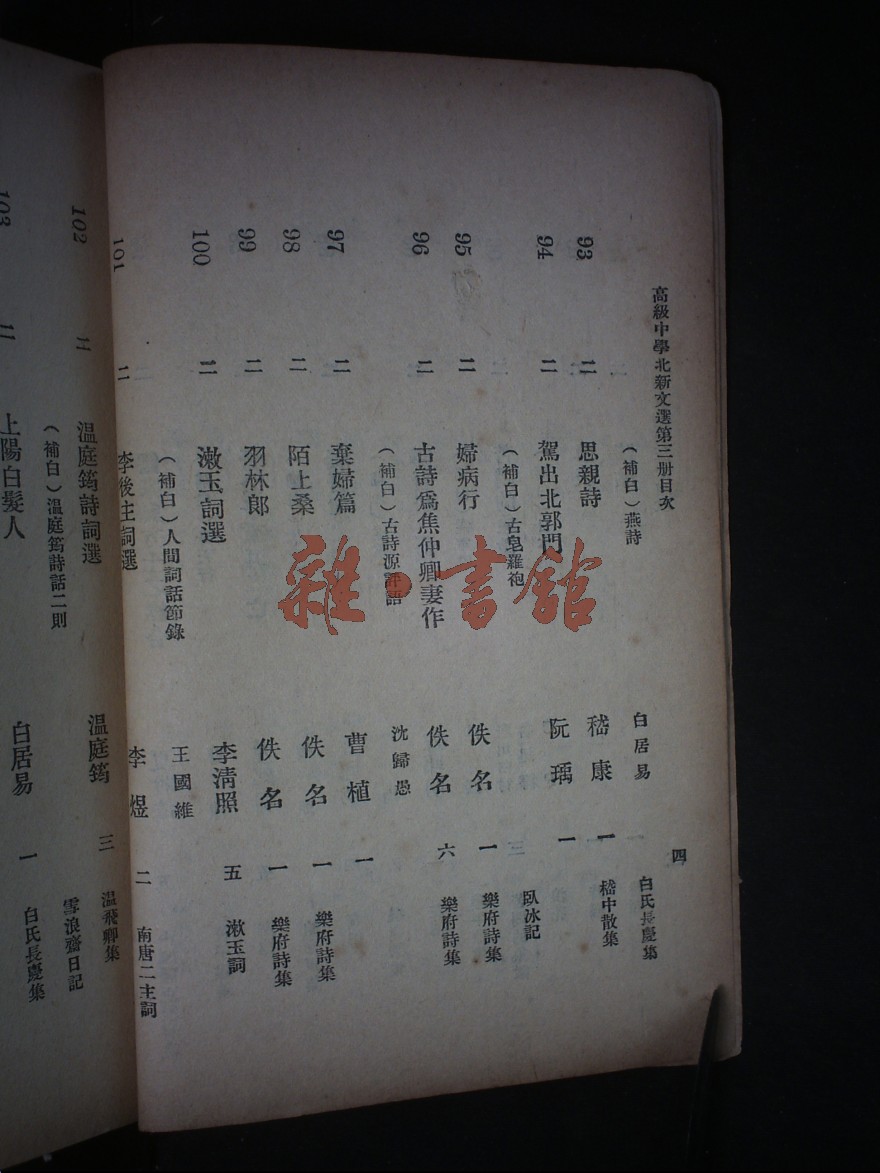 高級中學北新文選第三册目次 四
(補白)燕詩 白居易 白氏長慶集
93 二 思親詩 嵇康 一 嵇中散集
94 二 駕出北郭門 阮瑀 一
(補白)古皂羅袍 臥冰記
95 二 婦病行 佚名 一 樂府詩集
96 二 古詩爲焦仲卿妻作 佚名 六 樂府詩集
(補白)古詩源評語 沈歸愚
97 二 棄婦篇 曹植 一
98 二 陌上桑 佚名 一 樂府詩集
99 二 羽林郎 佚名 一 樂府詩集
100 二 漱玉詞選 李清照 五 漱玉詞
(補白)人間詞話節錄 王國維
101 二 李後主詞選 李煜 二 南唐二主詞
102 二 温庭筠詩詞選 温庭筠 三 温飛卿集
(補白)温庭筠詩話二則 雪浪齋日記
103 二 上陽白髮人 白居易 一 白氏長慶集
雜·書館